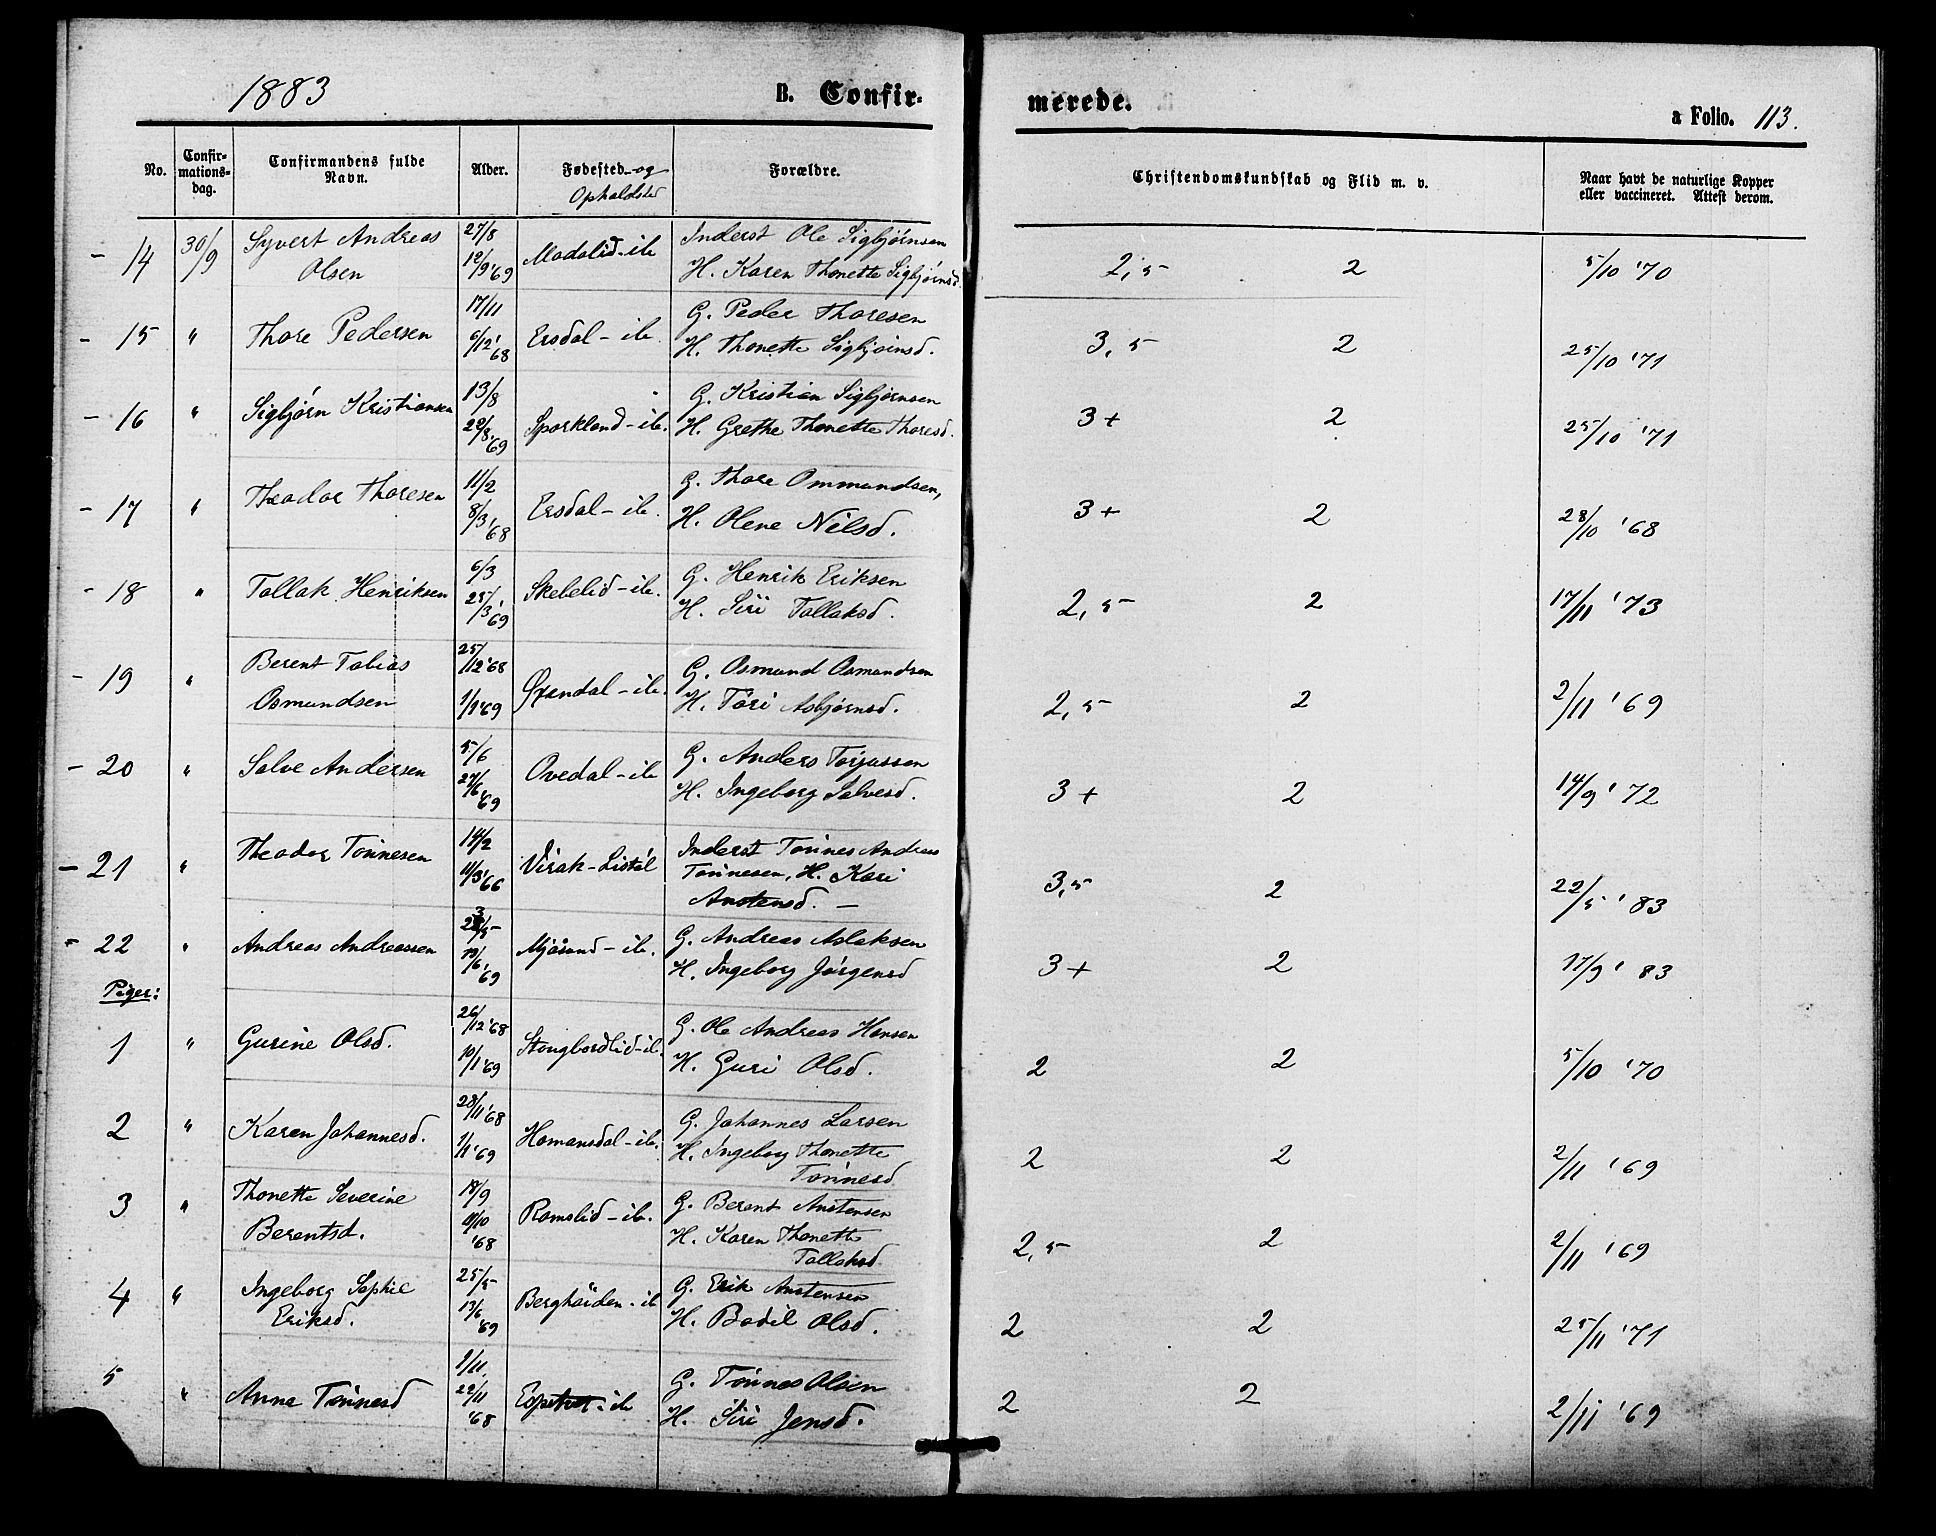 1883 B. Confir- merede. a Folio. 113.
No. Confir-mations-dag. Confirmandens fulde Navn. Alder. Fødested og Opholdsted Forældre. Christendomskundskab og Flid m. v. Naar havt de naturlige Kopper eller vaccineret. Attest derom.
- 14 30/9 Syvert Andreas 27/8 Modalid-ib Inderst Ole Sigbjørnsen 2,5 2 5/10 '70
Olsen 12/9 '69 H. Karen Thonette Sigbjørnsd.
- 15 " Thore Pedersen 17/11 Ersdal-ib. G. Peder Thoresen 3,5 2 25/10 '71
6/12 '68 H. Thonette Sigbjørnsd.
- 16 " Sigbjørn Kristiansen 13/8 Sporkland-ib. G. Kristian Sigbjørnsen 3+ 2 25/10 '71
22/8 '69 H. Grethe Thonette Thoresd.
- 17 " Theodor Thoresen 11/2 Ersdal-ib. G. Thore Ommundsen, 3+ 2 28/10 '68
8/3 '68 H. Olene Nilsd.
- 18 " Tallak Henriksen 6/3 Skebelid-ib. G. Henrik Eriksen 2,5 2 17/11 '73
25/3 '69 H. Siri Tallaksd.
- 19 " Berent Tobias 25/12 '68 Øxendal-ib. G. Osmund Osmundsen 2,5 2 2/11 '69
Osmundsen 1/1 '69 H. Tori Asbjørnsd.
- 20 " Salve Andersen 5/6 Ovedal-ib G. Anders Torjussen 3+ 2 14/9 '72
27/6 '69 H. Ingeborg Salvesd.
- 21 " Theodor Tønnesen 14/2 Virak-Listøl Inderst Tønnes Andreas 3,5 2 22/5 '83
11/3 '66 Tønnesen, H. Kari
Anstensd. -
- 22 " Andreas Andreassen 23/5 Mjåsund-ib. G. Andreas Aslaksen 3+ 2 17/9 '83
19/6 '69 H. Ingeborg Jørgensd
Piger:
1 " Gurine Olsd. 26/12 '68 Stongbordlid-ib. G. Ole Andreas Hansen 2 2 5/10 '70
10/1 '69 H. Guri Olsd.
2 " Karen Johannesd. 28/11 '68 Homansdal-ib. G. Johannes Larsen 2 2 2/11 '69
1/1 '69 H. Ingeborg Thonette
Tønnesd
3 " Thonette Severine 18/9 Romslid-ib. G. Berent Anstensen 2,5 2 2/11 '69
Berentsd. 11/10 '68 H. Karen Thonette
Tallaksd
4 " Ingeborg Sophie 25/5 Berghøiden-ib G. Erik Anstensen 2 2 25/11 '71
Eriksd. 13/6 '69 H. Bodil Olsd.
5 " Anne Tønnesd 1/11 ib G. Tønnes Olsen 2 2 2/11 '69
22/11 '68 H. Siri Jensd.